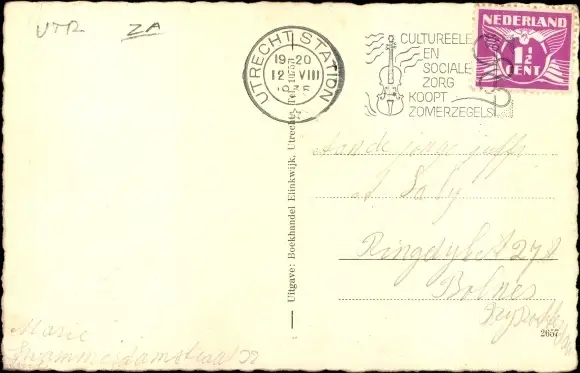 UTR ZA
UTRECHT STATION
19-20
12 VIII
CULTUREELE
EN
SOCIALE
ZORG
KOOPT
ZOMERZEGELS
NEDERLAND
1½
CENT
Uitgave: Boekhandel Elinkwijk, Utrecht, Tel. 10757
Aan de jonge juffr.
Ringdijk 278
Bolnes
Marie
2657